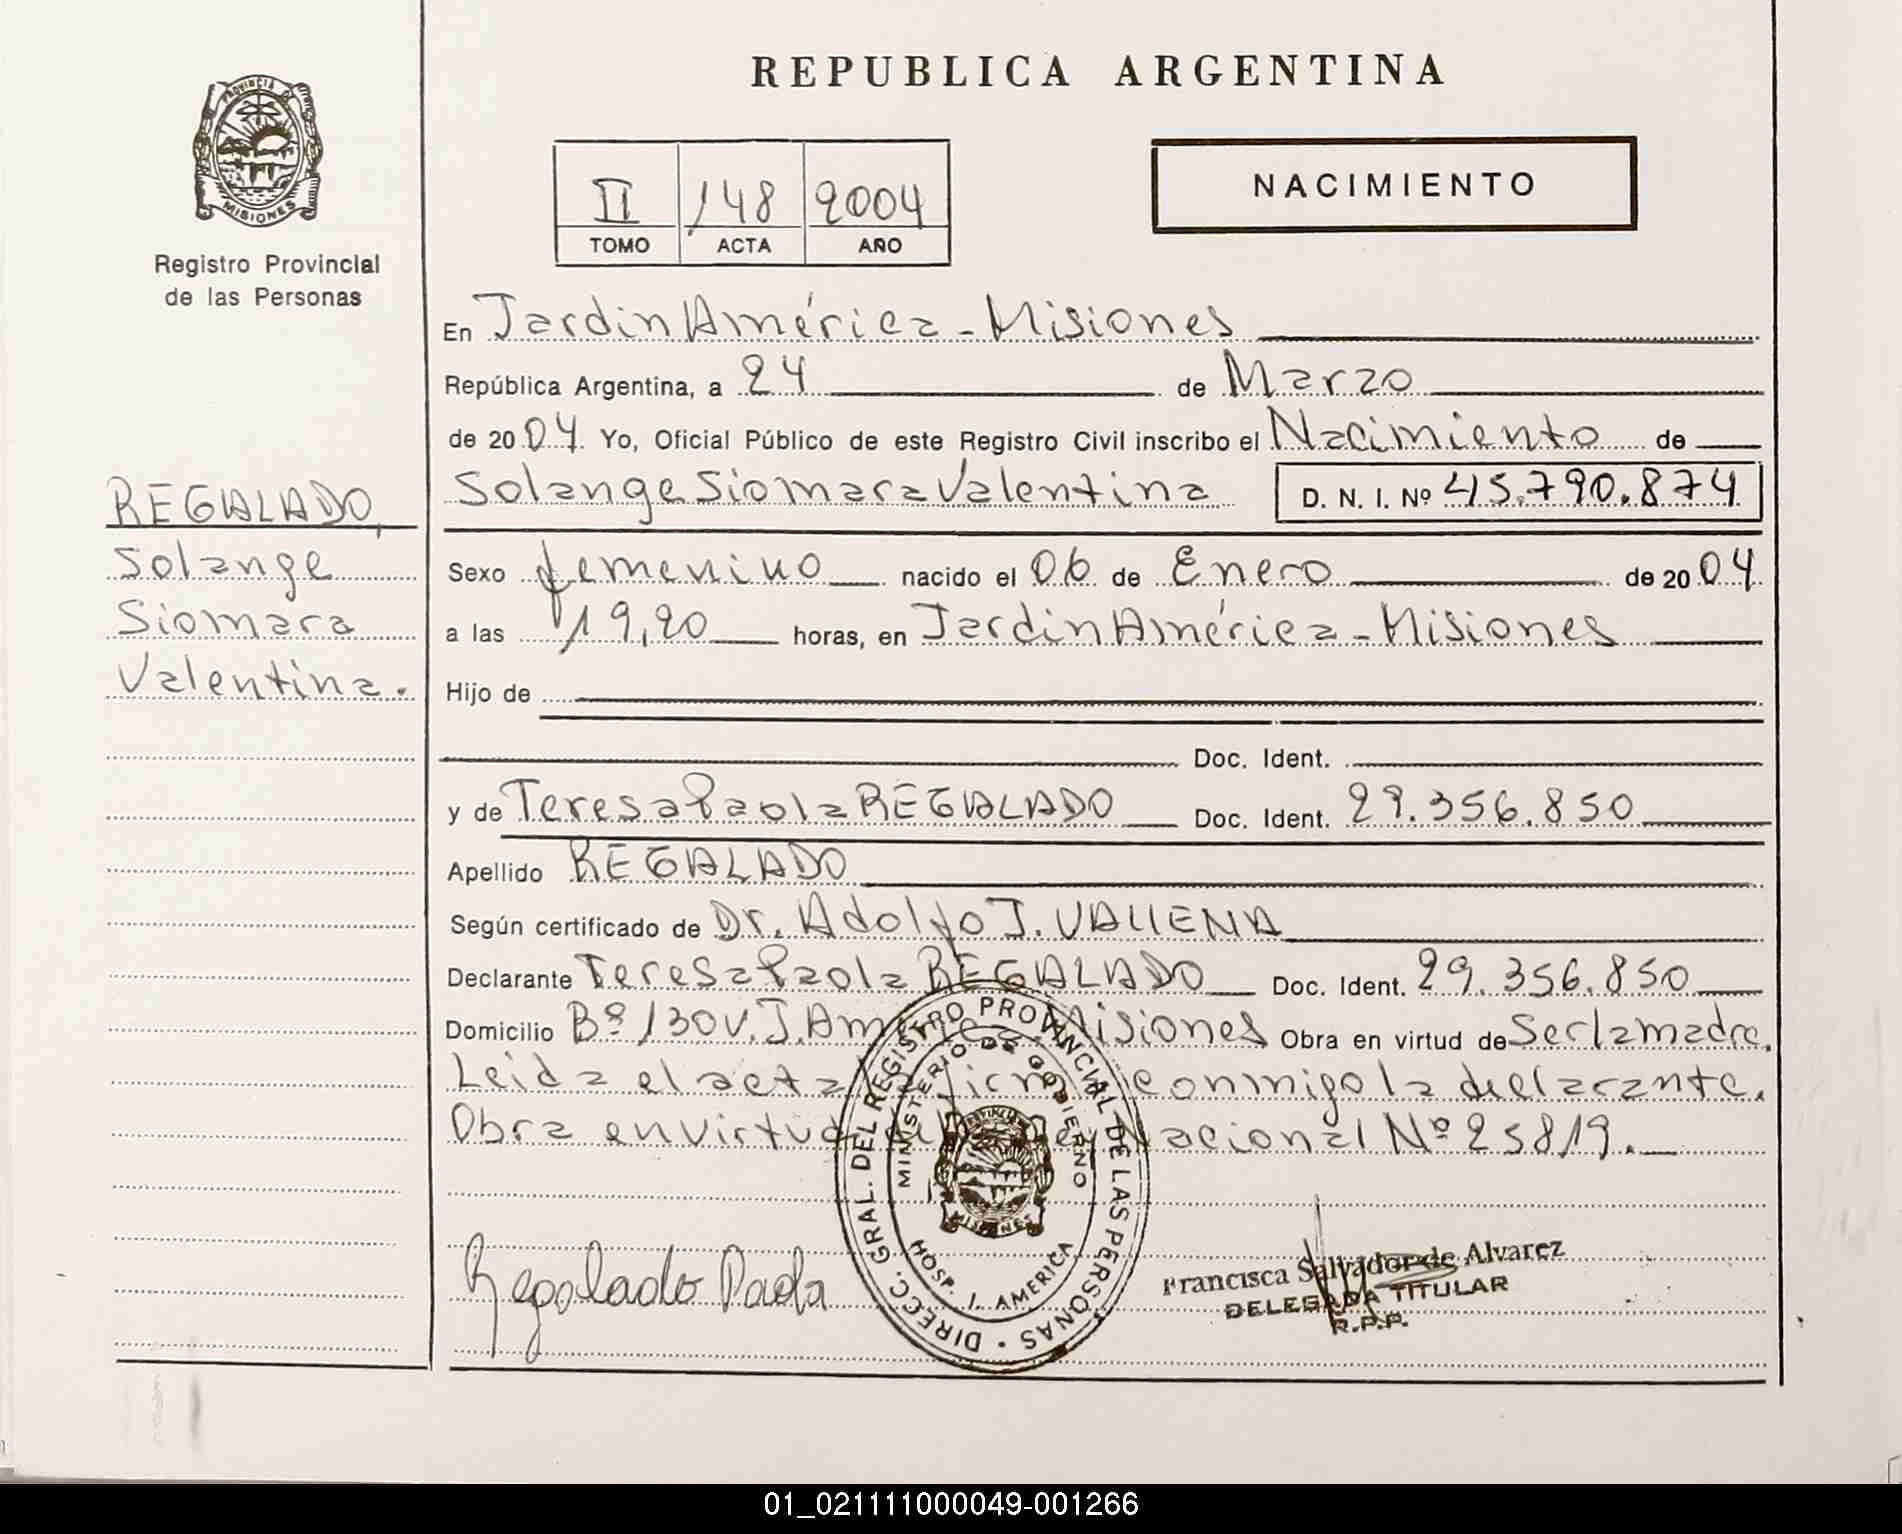 REPUBLICA ARGENTINA
PROVINCIA DE
MISIONES
Registro Provincial
de las Personas
II 148 2004
TOMO ACTA AÑO
NACIMIENTO
En Jardin América - Misiones
República Argentina, a 24 de Marzo
de 2004 Yo, Oficial Público de este Registro Civil inscribo el Nacimiento de
Solange Siomara Valentina D. N. I. Nº 45.790.874
REGALADO,
Solange
Siomara
Valentina.
Sexo femenino nacido el 06 de Enero de 2004
a las 19,20 horas, en Jardin América - Misiones
Hijo de
Doc. Ident.
y de Teresa Paola REGALADO Doc. Ident. 29.356.850
Apellido REGALADO
Según certificado de Dr. Adolfo J.
Declarante Teresa Paola REGALADO Doc. Ident. 29.356.850
Domicilio Bº 130 V. J. América Misiones Obra en virtud de Ser la madre.
Leida el acta firma conmigo la declarante.
Obra en virtud Nacional Nº 25819.
DIRECC. GRAL. DEL REGISTRO PROVINCIAL DE LAS PERSONAS
MINISTERIO DE GOBIERNO
PROVINCIA
MISIONES
HOSP. J. AMERICA
Regalado Paola
Francisca Salvador de Alvarez
DELEGADA TITULAR
R.P.P.
01_021111000049-001266